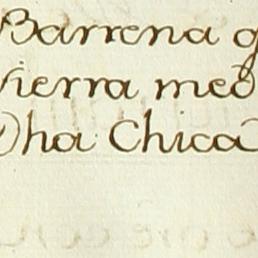 Barrena
Sierra med
ha Chica